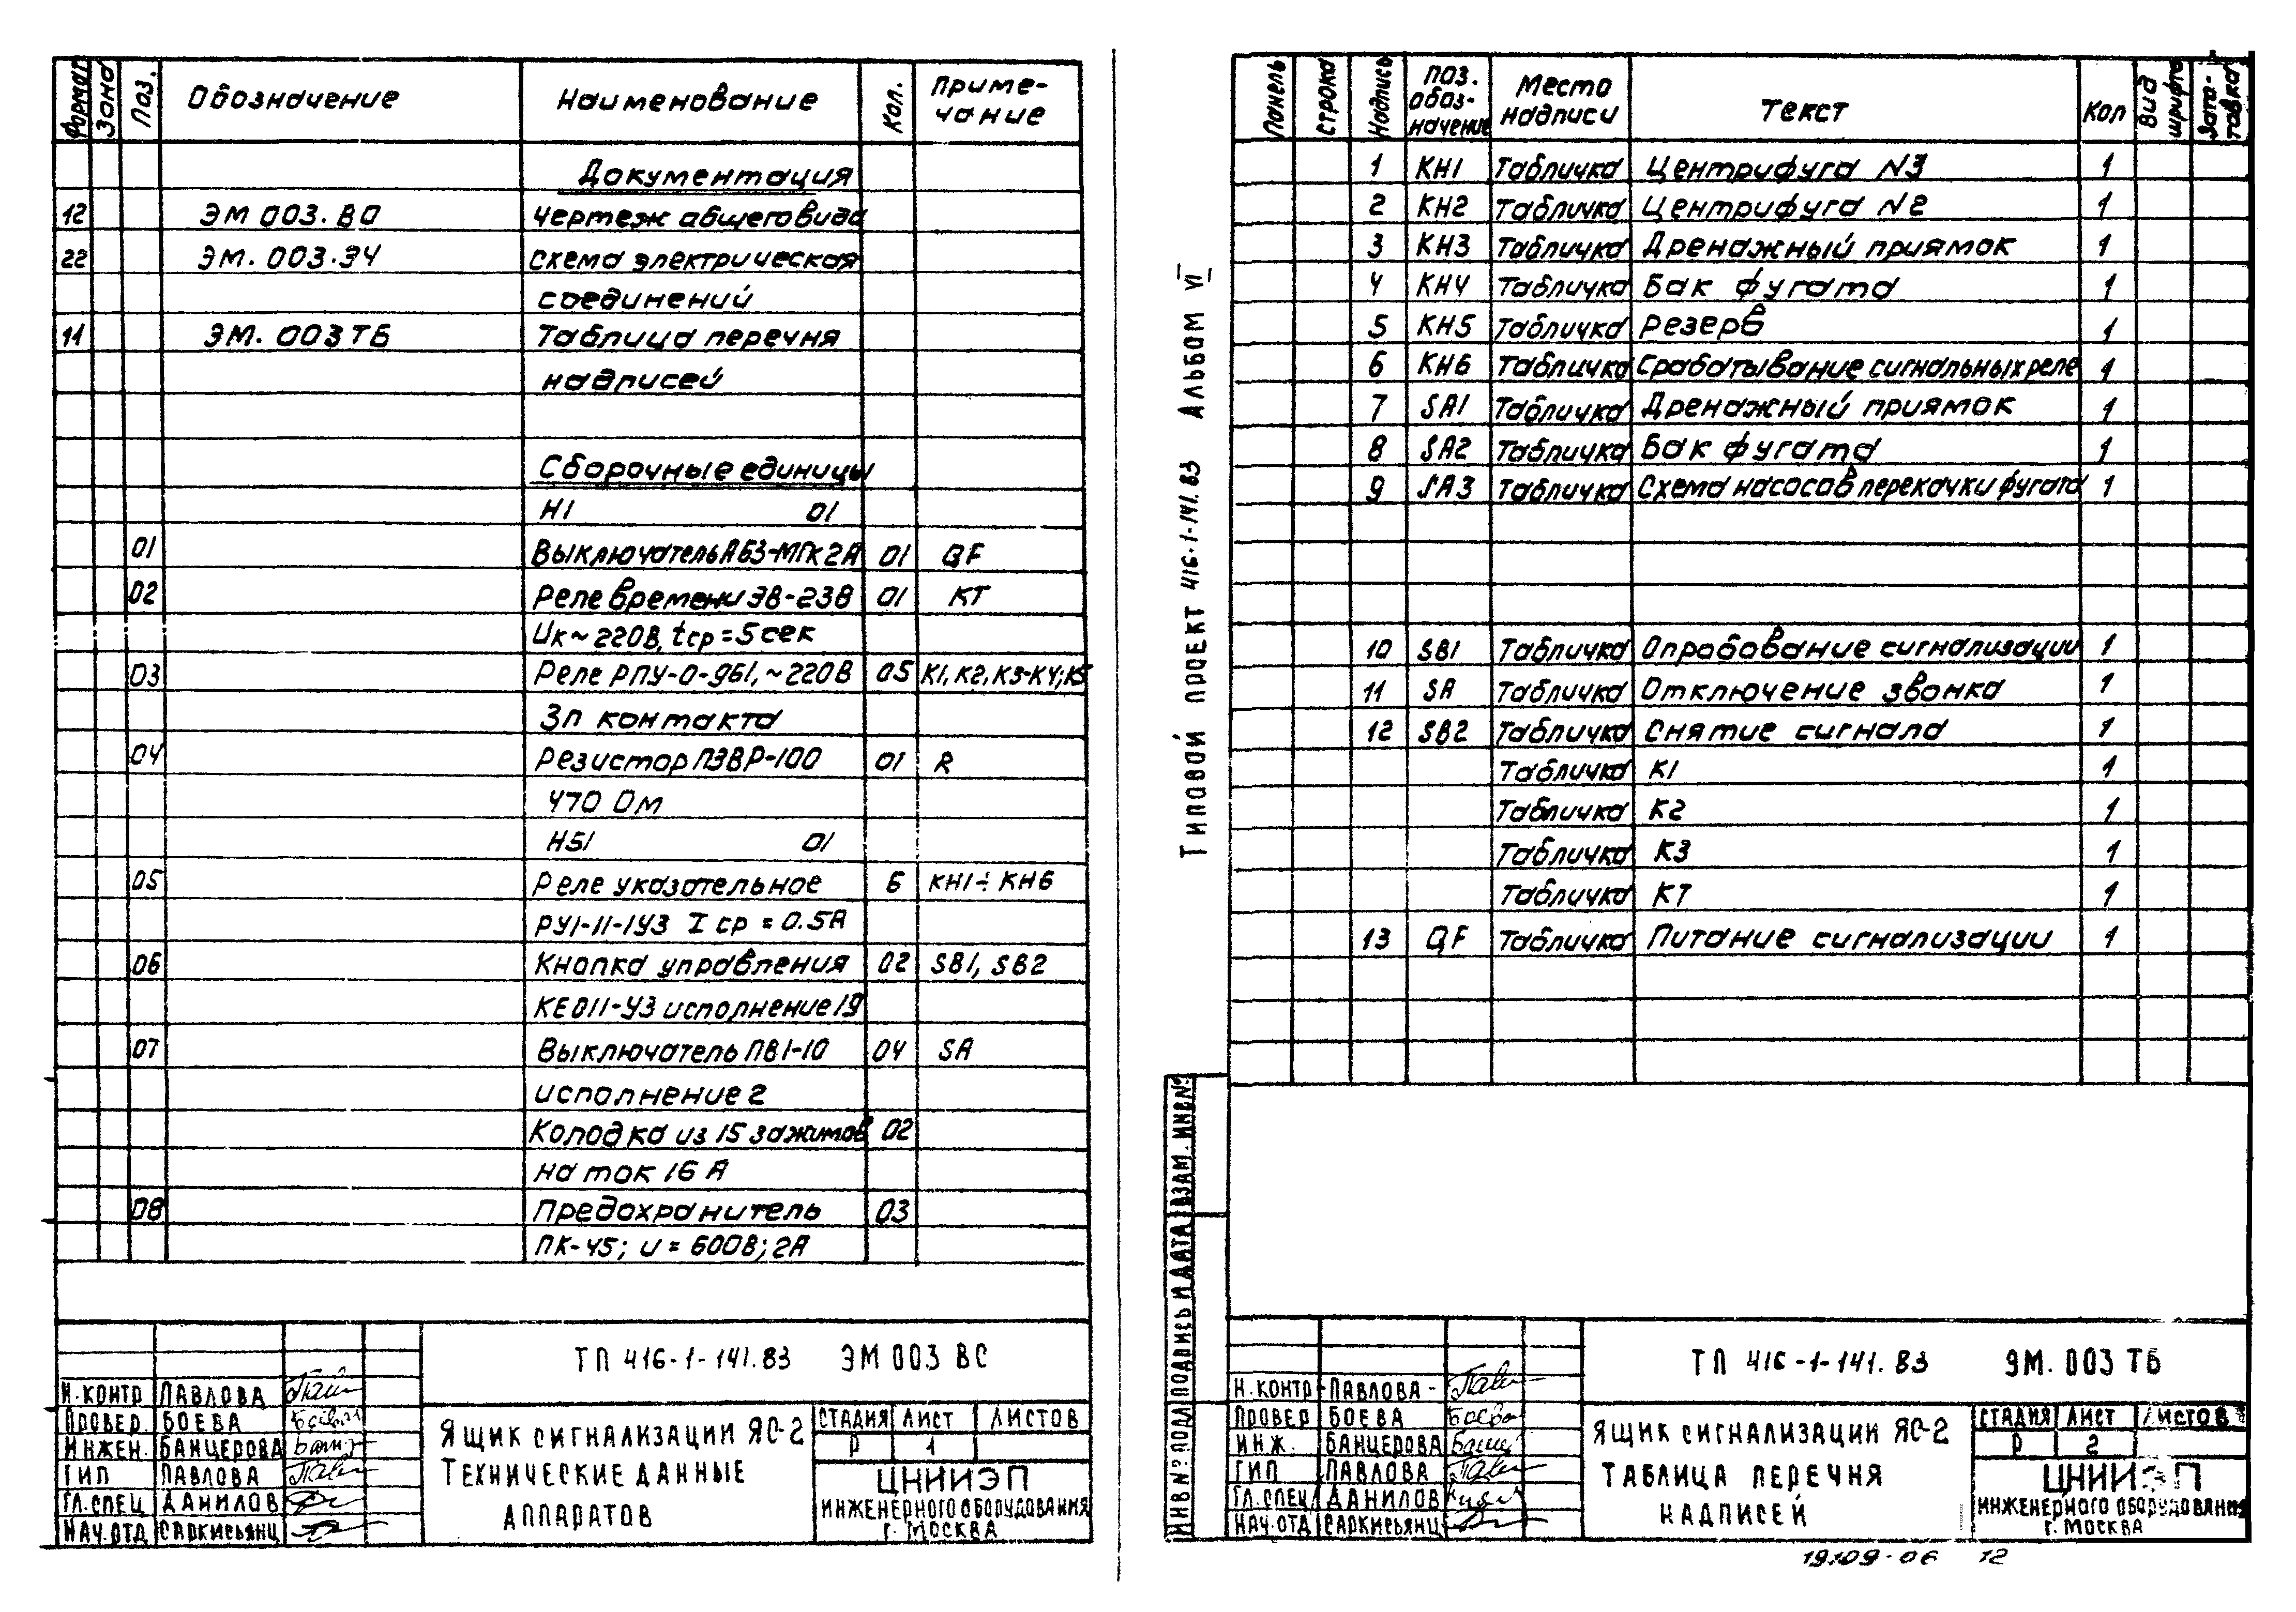 Формат Зона Поз. Обозначение Наименование Кол. Приме-
чание
Документация
12 ЭМ 003.ВО Чертеж общего вида
22 ЭМ.003.Э4 Схема электрическая
соединений
11 ЭМ.003ТБ Таблица перечня
надписей
Сборочные единицы
Н1 01
01 Выключатель АБ3-МГк2А 01 QF
02 Реле времени ЭВ-238 01 КТ
Uк~220В, tср=5сек
03 Реле РПУ-0-961, ~220В 05 К1, К2, К3-К4; К5
3п контакта
04 Резистор ПЭВР-100 01 R
470 Ом
Н51 01
05 Реле указательное 6 КН1÷КН6
РУ1-11-1У3 I ср = 0.5А
06 Кнопка управления 02 SB1, SB2
КЕ011-У3 исполнение 19
07 Выключатель ПВ1-10 04 SA
исполнение 2
Колодка из 15 зажимов 02
на ток 16 А
08 Предохранитель 03
ПК-45; U = 600В; 2А
ТП 416-1-141.83 ЭМ 003 ВС
Н.КОНТР ПАВЛОВА
ПРОВЕР. БОЕВА
ИНЖЕН. БАНЦЕРОВА
ГИП ПАВЛОВА
ГЛ.СПЕЦ ДАНИЛОВ
НАЧ.ОТД САРКИСЬЯНЦ
ЯЩИК СИГНАЛИЗАЦИИ ЯС-2
ТЕХНИЧЕСКИЕ ДАННЫЕ
АППАРАТОВ
СТАДИЯ ЛИСТ ЛИСТОВ
Р 1
ЦНИИЭП
ИНЖЕНЕРНОГО ОБОРУДОВАНИЯ
Г. МОСКВА
ТИПОВОЙ ПРОЕКТ 416-1-141.83 АЛЬБОМ VI
Панель Строка Надпись Поз.
обоз-
начение Место
надписи Текст Кол Вид
шрифта Зага-
товка
1 КН1 Табличка Центрифуга N3 1
2 КН2 Табличка Центрифуга N2 1
3 КН3 Табличка Дренажный приямок 1
4 КН4 Табличка Бак фугата 1
5 КН5 Табличка Резерв 1
6 КН6 Табличка Срабатывание сигнальных реле 1
7 SA1 Табличка Дренажный приямок 1
8 SA2 Табличка Бак фугата 1
9 SA3 Табличка Схема насосов перекачки фугата 1
10 SB1 Табличка Опробование сигнализации 1
11 SA Табличка Отключение звонка 1
12 SB2 Табличка Снятие сигнала 1
Табличка К1 1
Табличка К2 1
Табличка К3 1
Табличка КТ 1
13 QF Табличка Питание сигнализации 1
ИНВ№ ПОДЛ ПОДПИСЬ И ДАТА ВЗАМ. ИНВ№
ТП 416-1-141.83 ЭМ.003 ТБ
Н.КОНТР ПАВЛОВА
ПРОВЕР БОЕВА
ИНЖ. БАНЦЕРОВА
ГИП ПАВЛОВА
ГЛ.СПЕЦ ДАНИЛОВ
НАЧ.ОТД САРКИСЬЯНЦ
ЯЩИК СИГНАЛИЗАЦИИ ЯС-2
ТАБЛИЦА ПЕРЕЧНЯ
НАДПИСЕЙ
СТАДИЯ ЛИСТ ЛИСТОВ
Р 2
ЦНИИЭП
ИНЖЕНЕРНОГО ОБОРУДОВАНИЯ
Г. МОСКВА
19109-06 12